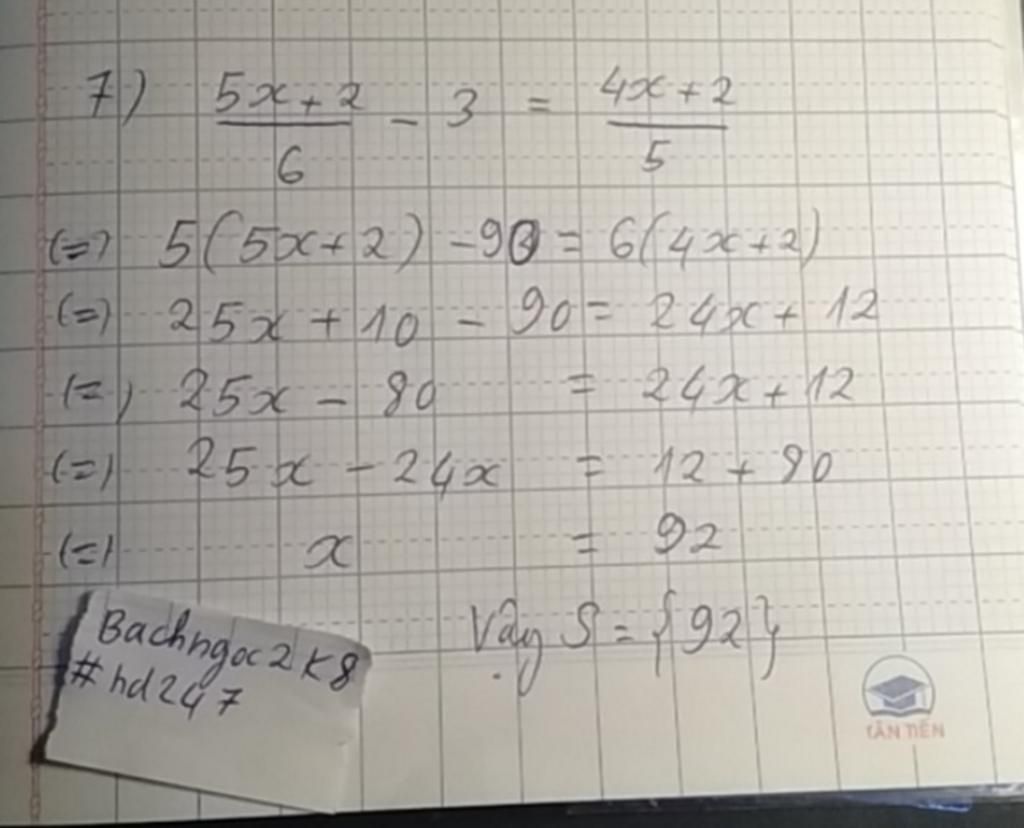 7) \frac{5x+2}{6} - 3 = \frac{4x+2}{5}
(=) 5(5x+2) - 90 = 6(4x+2)
(=) 25x + 10 - 90 = 24x + 12
(=) 25x - 80 = 24x + 12
(=) 25x - 24x = 12 + 80
(=) x = 92
Vậy S = {92}
Bachngoc2k8
#hd247
TÂN TIẾN